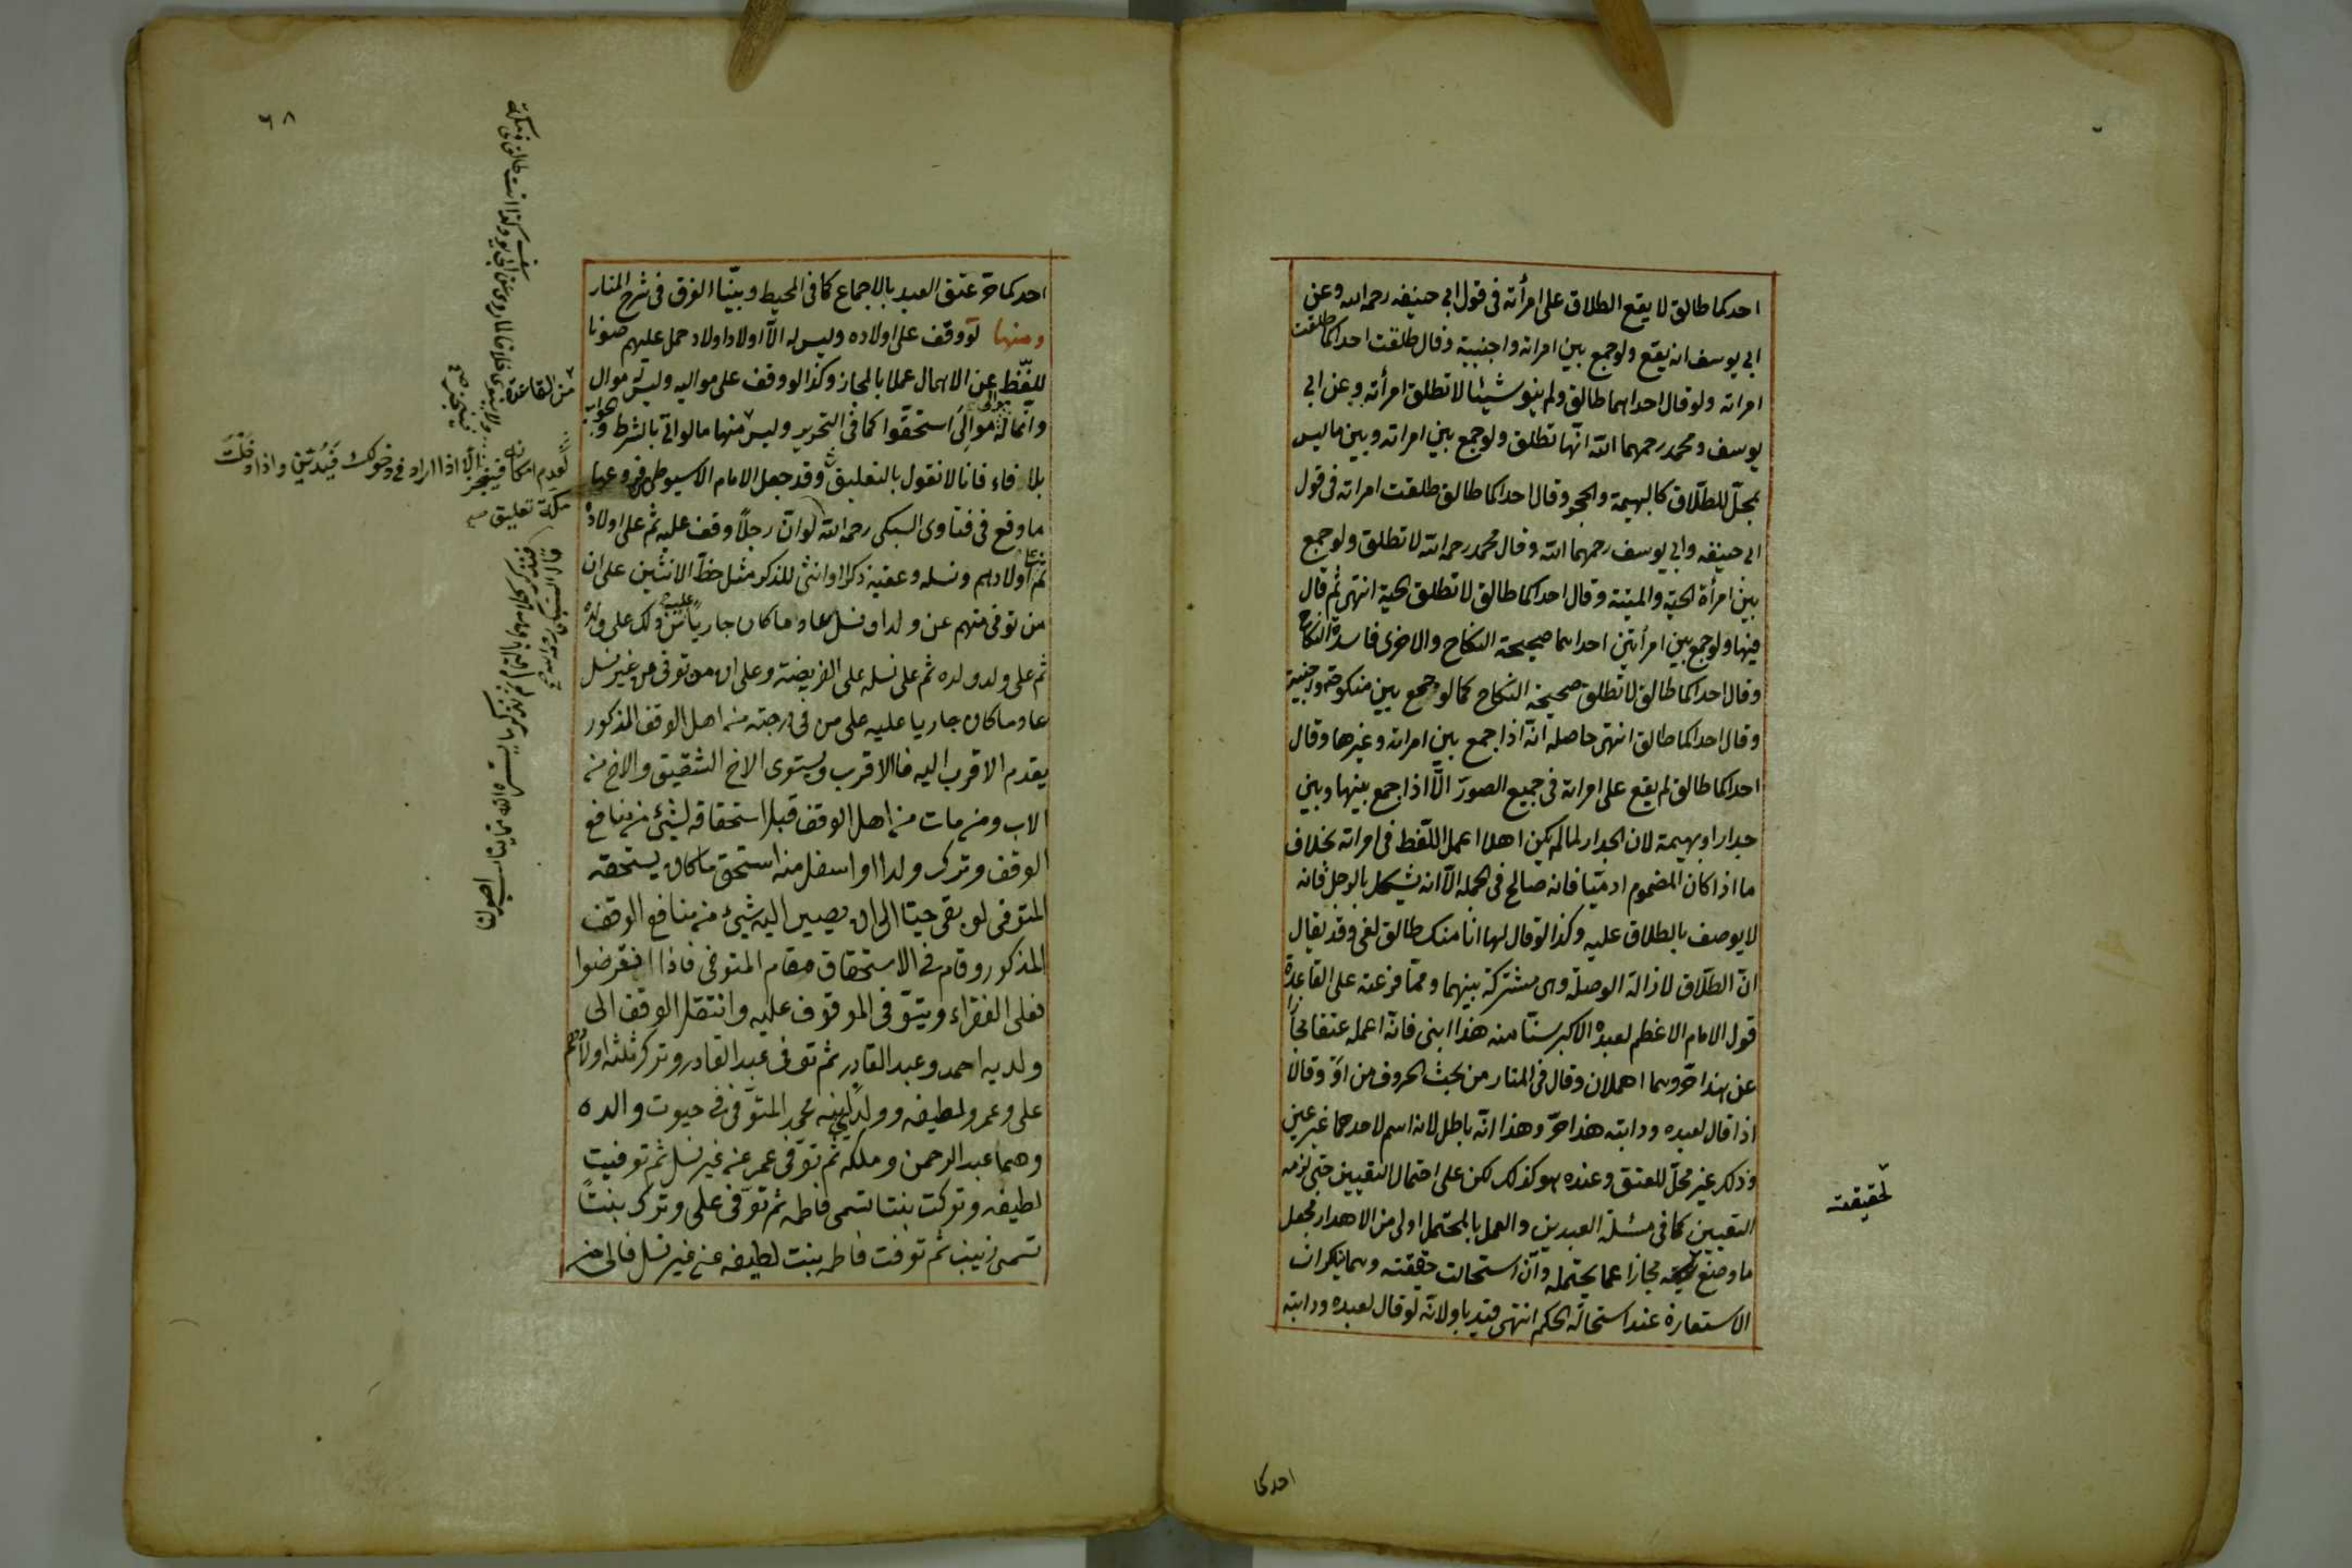 احدكما طالق لا يقع الطلاق على امرأته فى قول ابى حنيفه رحمه الله وعن
ابى يوسف انه يقع ولو جمع بين امراته واجنبية وقال طلقت احداكما طلقت
امراته ولو قال احداهما طالق ولم ينو شيئا لا تطلق امرأته وعن ابى
يوسف ومحمد رحمهما الله انها تطلق ولو جمع بين امراته وبين ما ليس
بمحل للطلاق كالبهيمة والحجر وقال احداكما طالق طلقت امراته فى قول
ابى حنيفه وابى يوسف رحمهما الله وقال محمد رحمه الله لا تطلق ولو جمع
بين امرأة الحية والميتة وقال احداكما طالق لا تطلق الحية انتهى ثم قال
فيها ولو جمع بين امرأتين احداهما صحيحة النكاح والاخرى فاسدة النكاح
وقال احداكما طالق لا تطلق صحيحة النكاح كما لو جمع بين منكوحته واجنبية
وقال احداكما طالق انتهى حاصله انه اذا جمع بين امراته وغيرها وقال
احداكما طالق لم يقع على امراته فى جميع الصور الا اذا جمع بينها وبين
جدار او بهيمة لان الجدار لما لم يكن اهلا اعمل اللفظ فى امراته بخلاف
ما اذا كان المضموم ادميا فانه صالح فى الجملة الا انه يشكل بالرجل فانه
لا يوصف بالطلاق عليه وكذا لو قال لها انا منك طالق لغى وقد يقال
ان الطلاق لازالة الوصلة وهى مشتركة بينهما ومما فرعته على القاعدة
قول الامام الاعظم لعبده الاكبر سنا منه هذا ابنى فانه اعمله عتقا مجازا
عن هذا حر وهما اهملان وقال فى المنار من بحث الحروف من او وقالا
اذا قال لعبده ودابته هذا حر وهذا انه باطل لانه اسم لاحدهما غير عين
وذلك غير محل للعتق وعنده هو كذلك لكن على احتمال التعيين حتى لزمه
التعيين كما فى مسئلة العبدين والعمل بالمحتمل اولى من الاهدار فجعل
ما وضع لحقيقته مجازا عما يحتمله وان استحالت حقيقته وهما ينكران
الاستعارة عند استحالة الحكم انتهى قيد باو لانه لو قال لعبده ودابته
لحقيقته
احدكما
٦٨
احدكما حر عتق العبد بالاجماع كما فى المحيط وبينا الفرق فى شرح المنار
ومنها لو وقف على اولاده وليس له الا اولاد اولاد حمل عليهم صونا
للفظ عن الاهمال عملا بالمجاز وكذا لو وقف على مواليه وليس له موال
وانما له موالى استحقوا كما فى التحرير وليس منها ما لو اتى بالشرط و
بلا فاء فانا لا نقول بالتعليق وقد جعل الامام الاسيوطى من فروعها
ما وقع فى فتاوى السبكى رحمه الله لو ان رجلا وقف عليه ثم على اولاده
ثم على اولادهم ونسله وعقبه ذكرا وانثى للذكر مثل حظ الانثيين على ان
من توفى منهم عن ولد او نسل عاد ما كان جاريا عليه من ذلك على ولده
ثم على ولد ولده ثم على نسله على الفريضة وعلى ان من توفى عن غير نسل
عاد ما كان جاريا عليه على من فى درجته من اهل الوقف المذكور
يقدم الاقرب اليه فالاقرب ويستوى الاخ الشقيق والاخ من
الاب ومن مات من اهل الوقف قبل استحقاقه لشئ من منافع
الوقف وترك ولدا او اسفل منه استحق ما كان يستحقه
المتوفى لو بقى حيا الى ان يصير اليه شيئ من منافع الوقف
المذكور وقام فى الاستحقاق مقام المتوفى فاذا انقرضوا
فعلى الفقراء ويتوفى الموقوف عليه وانتقل الوقف الى
ولديه احمد وعبد القادر ثم توفى عبد القادر وترك ثلثه اولادهم
على وعمر ولطيفه وولدى ابنه محمد المتوفى فى حيوت والده
وهما عبد الرحمن وملكه ثم توفى عمر عن غير نسل ثم توفيت
لطيفه وتركت بنتا تسمى فاطمه ثم توفى على وترك بنتا
تسمى زينب ثم توفت فاطمه بنت لطيفه عن غير نسل فالى من
من القاعدة
لعدم امكانه فينجز الا اذا اراد فى دخولك فيدين واذا دخلت
مكة تعليق